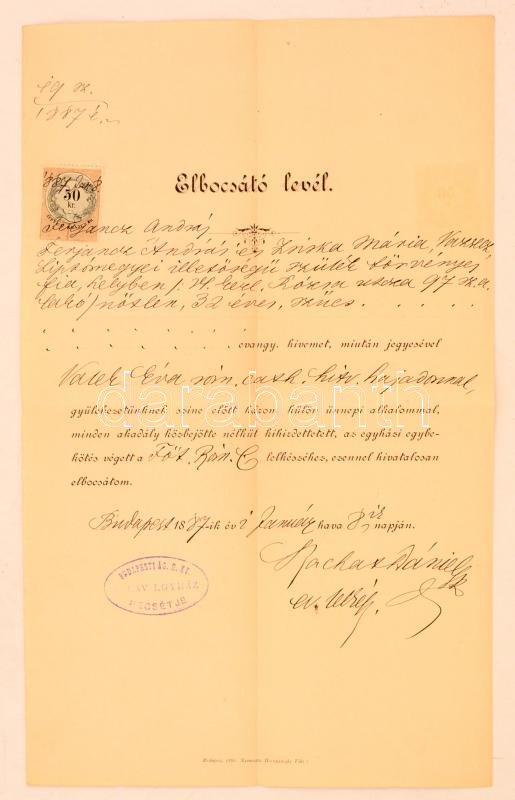 19 sz.
1887 é.
50
kr.
Elbocsátó levél.
Ferjancz András
Ferjancz András és Zriska Mária,
Liptómegyei illetőségű szülék törvényes
fia, helyben /: VI. ker. Rózsa utcza 97 sz. a.
lakó/ nőtlen, 32 éves, szűcs . . . .
. . . . . . . evangy. hivemet, miután jegyesével
Vacek Éva róm. cath. hitv. hajadonnal,
gyülekezetünknek szine előtt három külön ünnepi alkalommal,
minden akadály közbejötte nélkül kihirdettetett, az egyházi egybe-
kötés végett a Főt. Róm. C lelkészéhez, ezennel hivatalosan
elbocsátom.
Budapest 1887-ik évi Január hava 8 napján.
darabanth
BUDAPESTI ÁG. H. EV.
EGYHÁZ
PECSÉTJE
Dániel
ev. lelkész
Budapest,